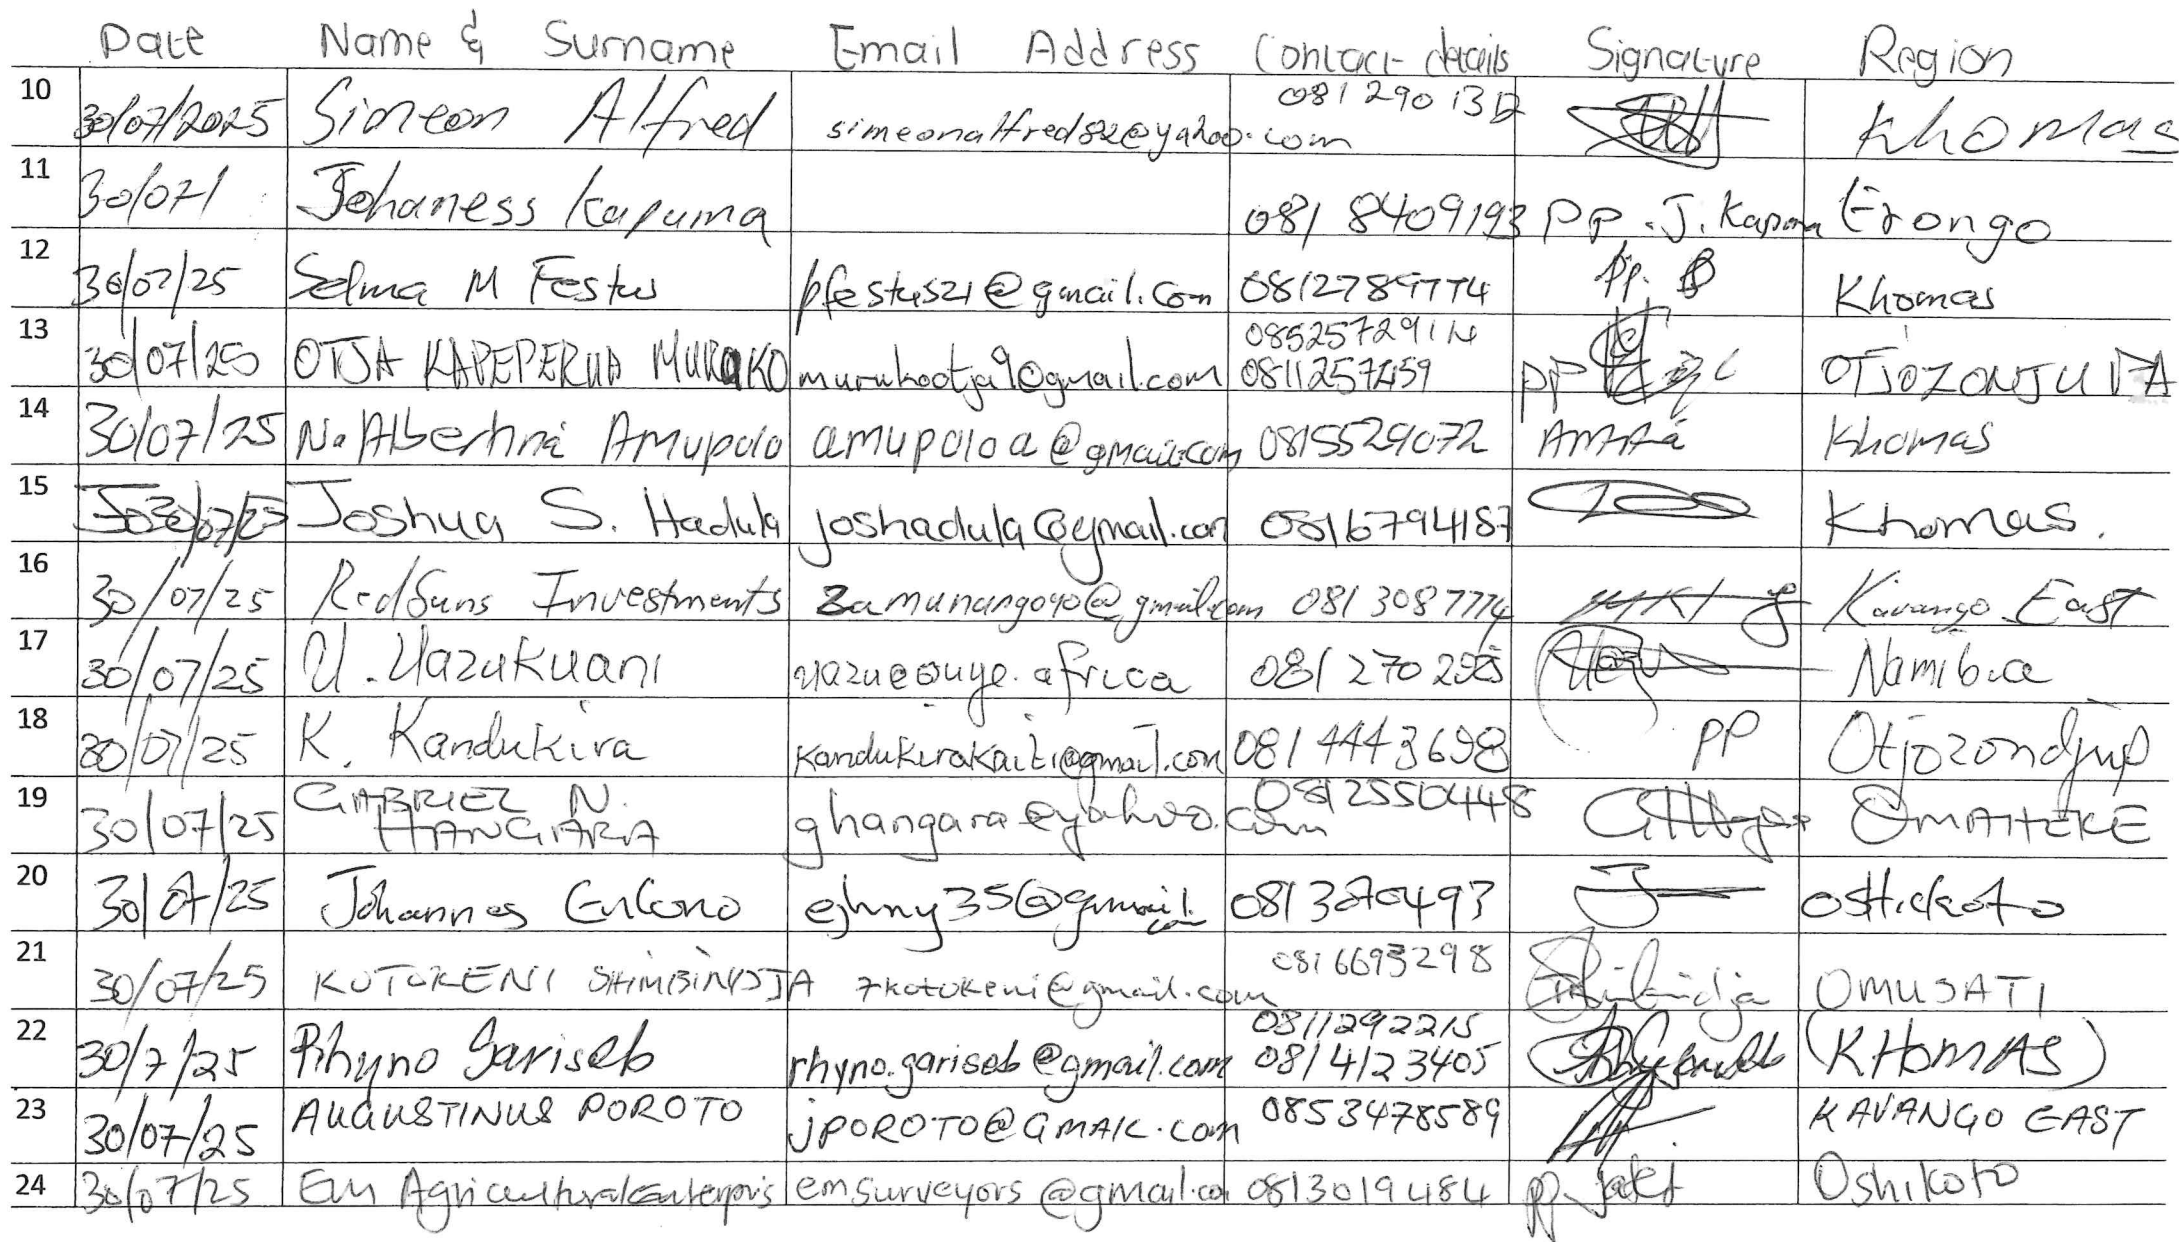 Date Name & Surname Email Address Contact details Signature Region
10 30/07/2025 Simeon Alfred simeonalfred82@yahoo.com 081 290 1312 Khomas
11 30/07/ Johaness Kapuma 081 8409193 pp. J. Kapuma Erongo
12 30/07/25 Selma M Festus pfestus21@gmail.com 0812789774 pp. Khomas
13 30/07/25 OTJA KAPEPERUA MURUKO murukootja9@gmail.com 0852572914 0811257459 pp OTJOZONJUPA
14 30/07/25 N. Albertina Amupolo amupoloa@gmail.com 0815529072 Khomas
15 30/07/25 Joshua S. Hadula joshadula@gmail.com 0816794187 Khomas.
16 30/07/25 RedSuns Investments zamunango90@gmail.com 081 3087774 Kavango East
17 30/07/25 U. Uazukuani uazu@ouye.africa 081 270 Namibia
18 30/07/25 K. Kandukira kandukirakaiti@gmail.com 081 4443698 PP Otjozondjup
19 30/07/25 GABRIEL N. HANGARA ghangara@yahoo.com 08125504448 OMAHEKE
20 30/07/25 Johannes Enkono ejhny35@gmail.com Oshikoto
21 30/07/25 KOTOKENI SHIMBINDJA 7kotokeni@gmail.com 0816693298 OMUSATI
22 30/7/25 Rhyno Gariseb rhyno.gariseb@gmail.com 0811292215 0814123405 (KHOMAS)
23 30/07/25 AUGUSTINUS POROTO jPOROTO@GMAIL.com 0853478589 KAVANGO EAST
24 30/07/25 Em Agricultural Enterpris emsurveyors@gmail.co 0813019484 pp. Oshikoto